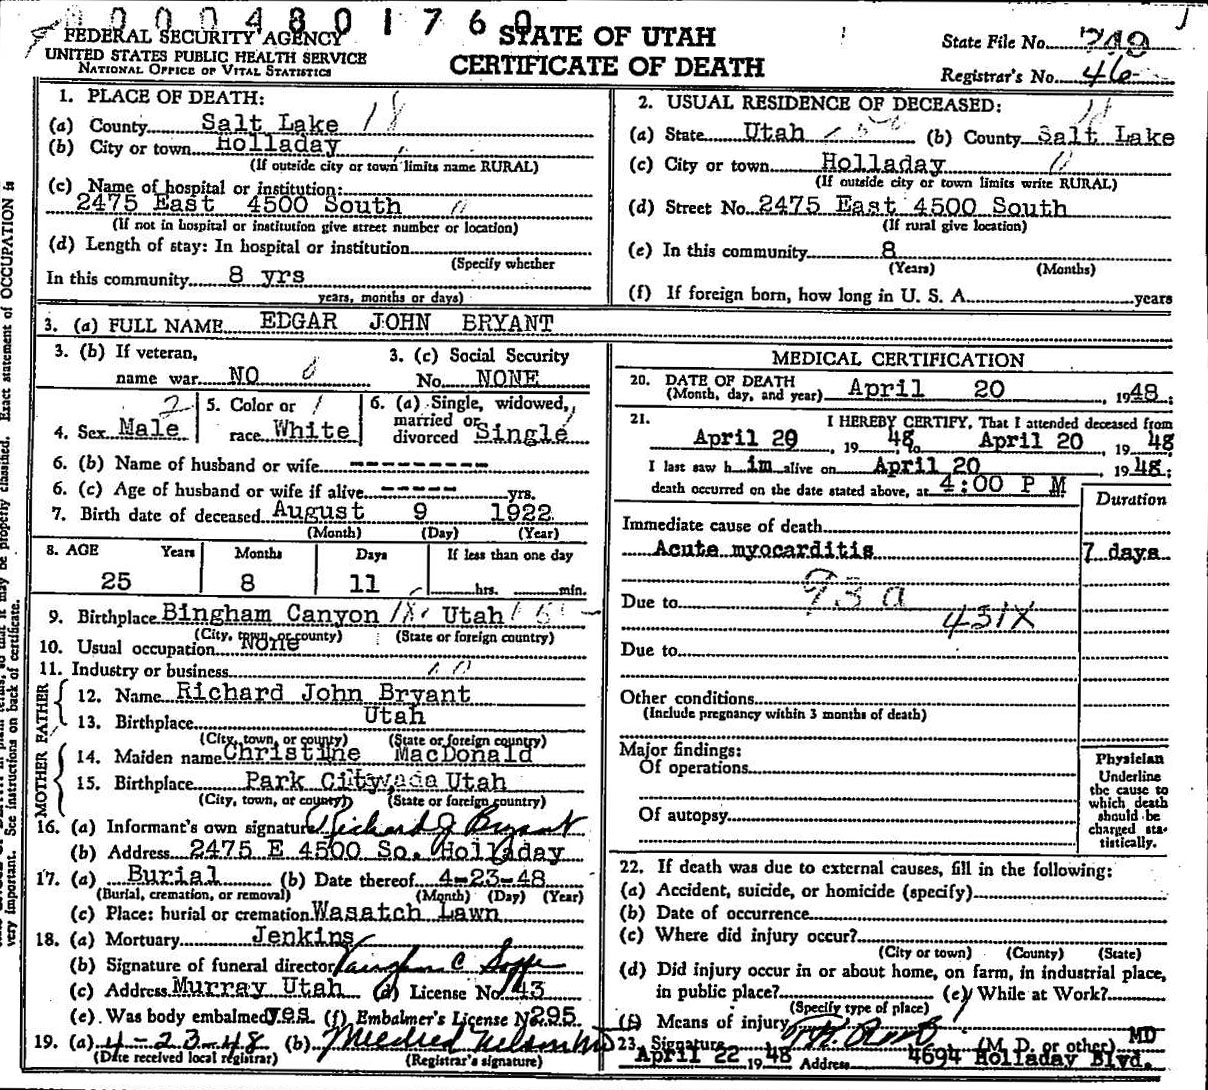 00004801760
FEDERAL SECURITY AGENCY
UNITED STATES PUBLIC HEALTH SERVICE
NATIONAL OFFICE OF VITAL STATISTICS
STATE OF UTAH
CERTIFICATE OF DEATH
State File No.
Registrar's No. 46
1. PLACE OF DEATH:
(a) County Salt Lake 18
(b) City or town Holladay
(If outside city or town limits name RURAL)
(c) Name of hospital or institution:
2475 East 4500 South
(If not in hospital or institution give street number or location)
(d) Length of stay: In hospital or institution
(Specify whether
In this community 8 yrs
years, months or days)
2. USUAL RESIDENCE OF DECEASED:
(a) State Utah (b) County Salt Lake
(c) City or town Holladay
(If outside city or town limits write RURAL)
(d) Street No. 2475 East 4500 South
(If rural give location)
(e) In this community 8
(Years) (Months)
(f) If foreign born, how long in U. S. A. years
3. (a) FULL NAME EDGAR JOHN BRYANT
3. (b) If veteran, name war NO
3. (c) Social Security No. NONE
4. Sex Male
5. Color or race White
6. (a) Single, widowed, married or divorced Single
6. (b) Name of husband or wife ---------
6. (c) Age of husband or wife if alive ----- yrs.
7. Birth date of deceased August 9 1922
(Month) (Day) (Year)
8. AGE Years Months Days If less than one day
25 8 11 hrs. min.
9. Birthplace Bingham Canyon Utah
(City, town, or county) (State or foreign country)
10. Usual occupation None
11. Industry or business
FATHER
12. Name Richard John Bryant
13. Birthplace Utah
(City, town, or county) (State or foreign country)
MOTHER
14. Maiden name Christine MacDonald
15. Birthplace Park City Utah
(City, town, or county) (State or foreign country)
16. (a) Informant's own signature Richard J Bryant
(b) Address 2475 E 4500 So. Holladay
17. (a) Burial (b) Date thereof 4-23-48
(Burial, cremation, or removal) (Month) (Day) (Year)
(c) Place: burial or cremation Wasatch Lawn
18. (a) Mortuary Jenkins
(b) Signature of funeral director Vaughn C
(c) Address Murray Utah (d) License No. 43
(e) Was body embalmed yes (f) Embalmer's License No. 295
19. (a) 4-23-48 (b) Mildred Nelson
(Date received local registrar) (Registrar's signature)
MEDICAL CERTIFICATION
20. DATE OF DEATH
(Month, day, and year) April 20, 1948
21. I HEREBY CERTIFY, That I attended deceased from
April 20, 1948 to April 20, 1948
I last saw him alive on April 20, 1948;
death occurred on the date stated above, at 4:00 P M
Duration
Immediate cause of death
Acute myocarditis 7 days
93a
Due to
431X
Due to
Other conditions
(Include pregnancy within 3 months of death)
Major findings:
Of operations
Of autopsy
Physician
Underline
the cause to
which death
should be
charged sta-
tistically.
22. If death was due to external causes, fill in the following:
(a) Accident, suicide, or homicide (specify)
(b) Date of occurrence
(c) Where did injury occur?
(City or town) (County) (State)
(d) Did injury occur in or about home, on farm, in industrial place,
in public place? (e) While at Work?
(Specify type of place)
(f) Means of injury
23. Signature (M. D. or other) MD
April 22 1948 Address 4694 Holladay Blvd.
Exact statement of OCCUPATION is
may be properly classified.
very important. See instructions on back of certificate.